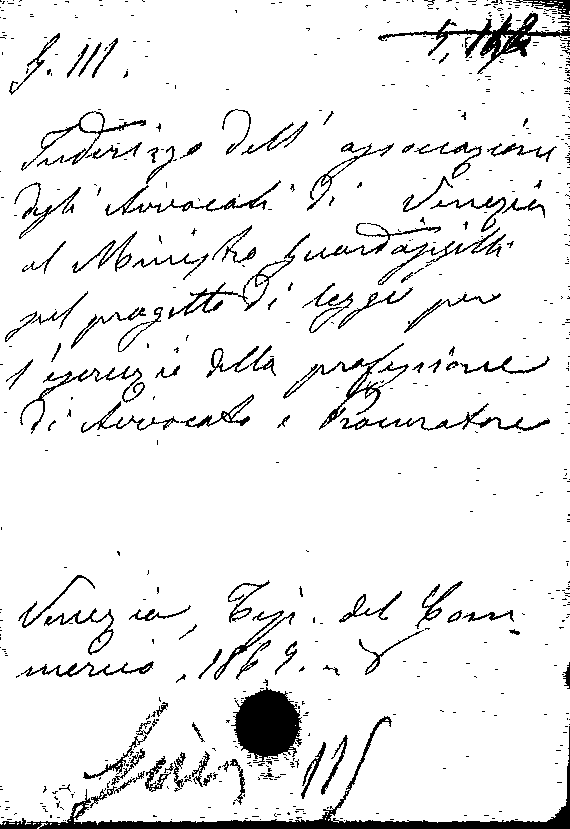 G. III.
Indirizzo dell' associazione
degli Avvocati di Venezia
al Ministro
sul progetto di legge per
l'esercizio della professione
di Avvocato e Procuratore
Venezia, Tip. del Com-
mercio, 1869. in 8